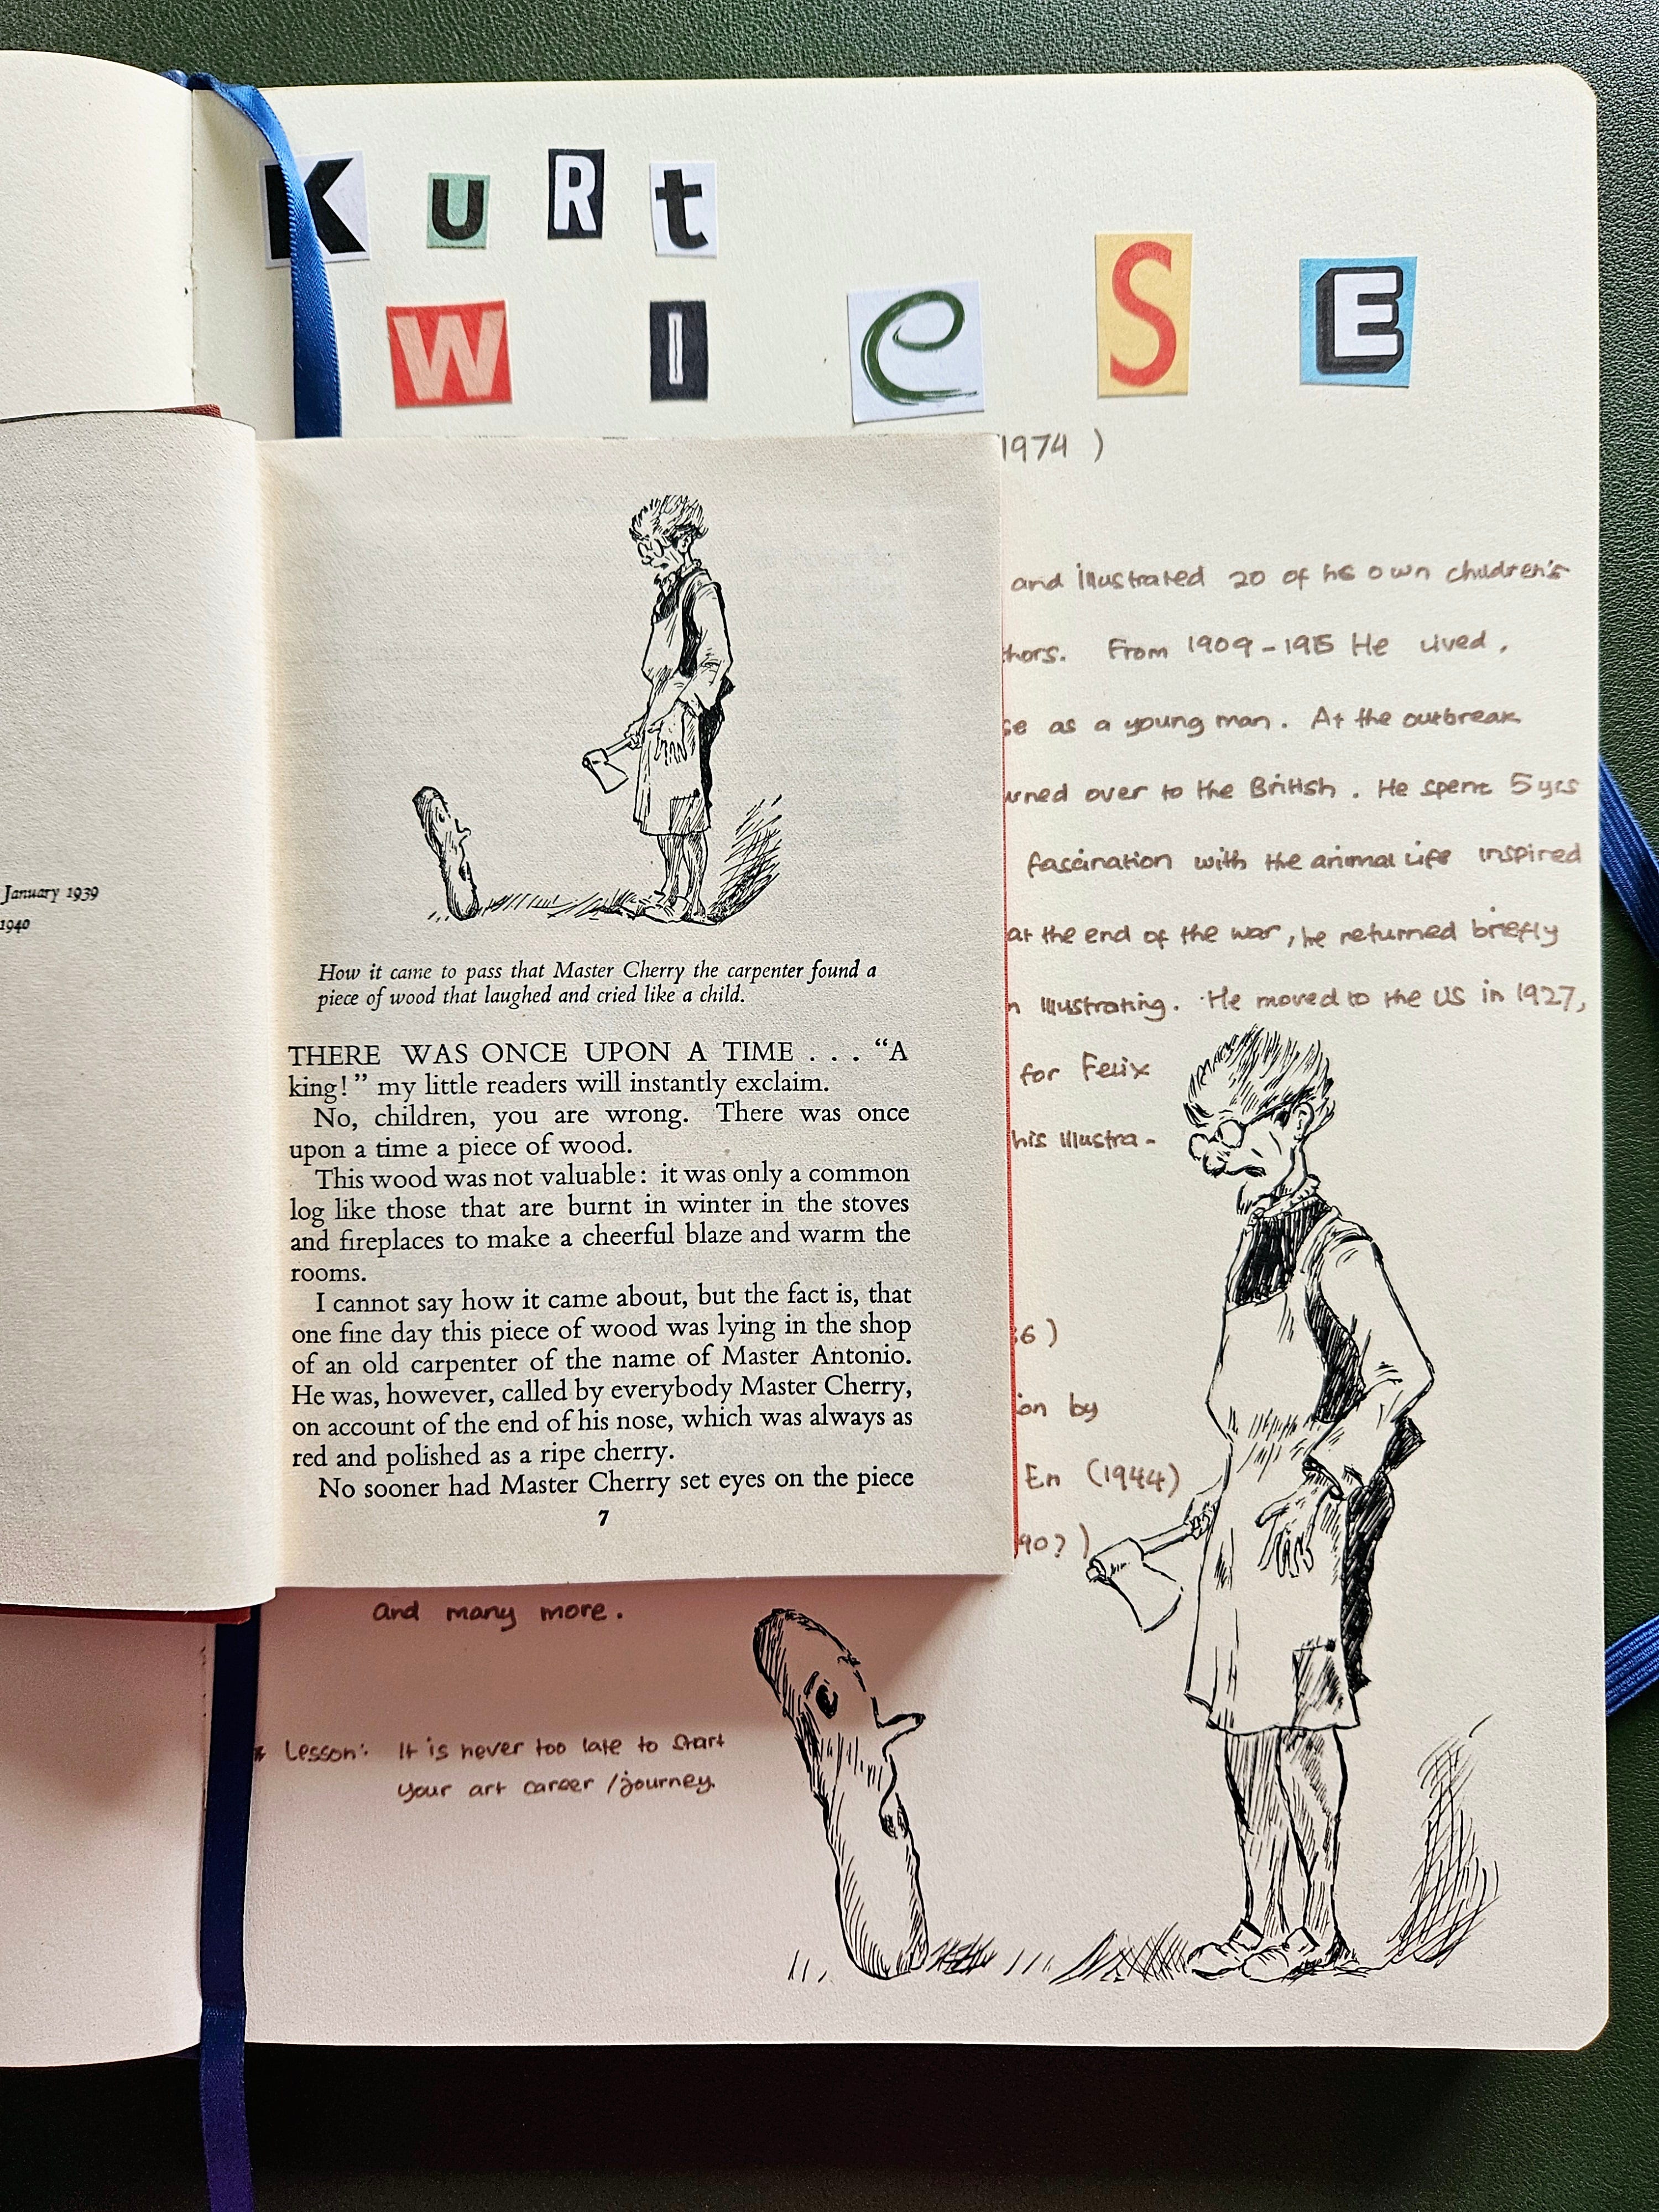 KuRt
WIeSE
1974 )
and illustrated 20 of his own children's
thors. From 1909-1915 He lived,
se as a young man. At the outbreak
urned over to the British. He spent 5 yrs
fascination with the animal life inspired
at the end of the war, he returned briefly
n Illustrating. He moved to the US in 1927,
for Felix
his Illustra-
36 )
on by
En (1944)
90? )
and many more.
* Lesson: It is never too late to start
your art career / journey.
January 1939
1940
How it came to pass that Master Cherry the carpenter found a
piece of wood that laughed and cried like a child.
THERE WAS ONCE UPON A TIME . . . “A
king!” my little readers will instantly exclaim.
No, children, you are wrong. There was once
upon a time a piece of wood.
This wood was not valuable: it was only a common
log like those that are burnt in winter in the stoves
and fireplaces to make a cheerful blaze and warm the
rooms.
I cannot say how it came about, but the fact is, that
one fine day this piece of wood was lying in the shop
of an old carpenter of the name of Master Antonio.
He was, however, called by everybody Master Cherry,
on account of the end of his nose, which was always as
red and polished as a ripe cherry.
No sooner had Master Cherry set eyes on the piece
7